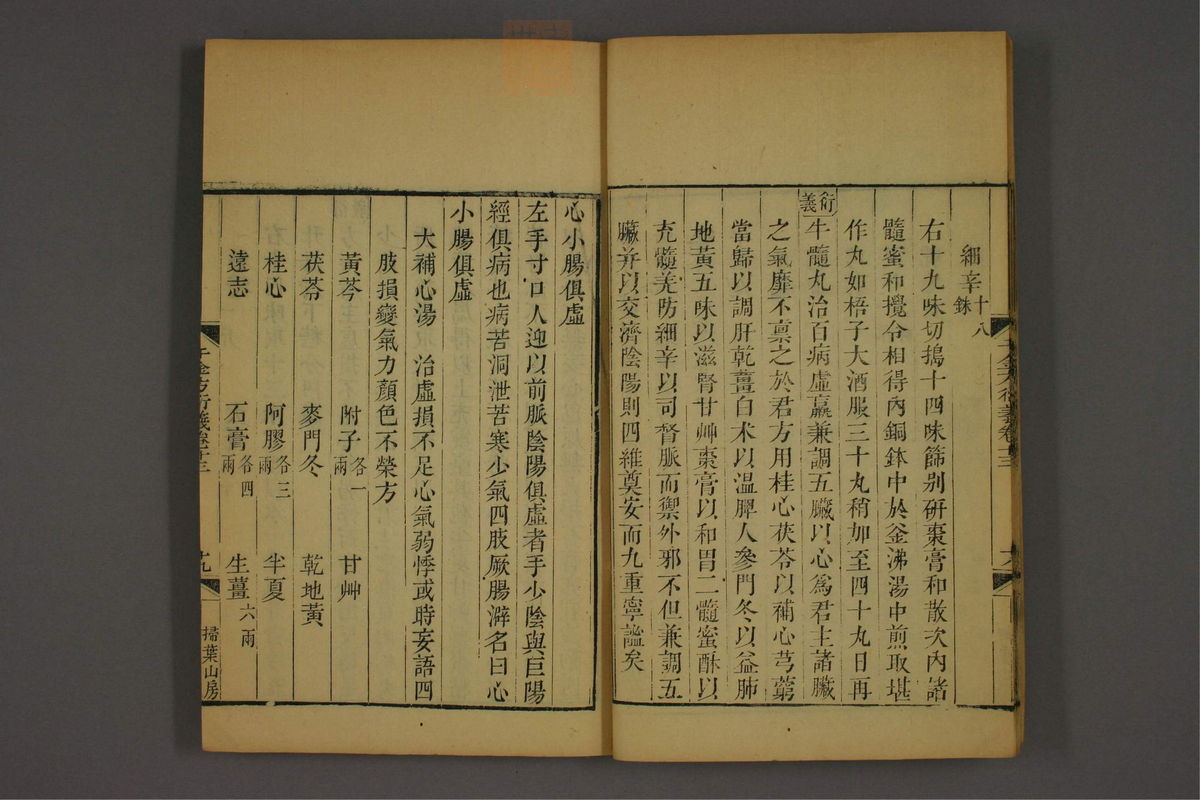 細辛十八銖
右十九味切搗十四味篩別硏棗膏和散次內諸
髓蜜和攪令相得內銅鉢中於釜沸湯中煎取堪
作丸如梧子大酒服三十丸稍加至四十丸日再
衍義
牛髓丸治百病虛羸兼調五臟以心爲君主諸臟
之氣靡不稟之於君方用桂心茯苓以補心芎藭
當歸以調肝乾薑白朮以溫脾人參門冬以益肺
地黃五味以滋腎甘艸棗膏以和胃二髓蜜酥以
充髓羌防細辛以司督脈而禦外邪不但兼調五
臟并以交濟陰陽則四維奠安而九重寧謐矣
千金方衍義卷十三
十八
心小腸俱虛
左手寸口人迎以前脈陰陽俱虛者手少陰與巨陽
經俱病也病苦洞泄苦寒少氣四肢厥腸澼名曰心
小腸俱虛
大補心湯 治虛損不足心氣弱悸或時妄語四
肢損變氣力顏色不榮方
黃芩 附子各一兩 甘艸
茯苓 麥門冬 乾地黃
桂心 阿膠各三兩 半夏
遠志 石膏各四兩 生薑六兩
千金方衍義卷十三
十九
掃葉山房